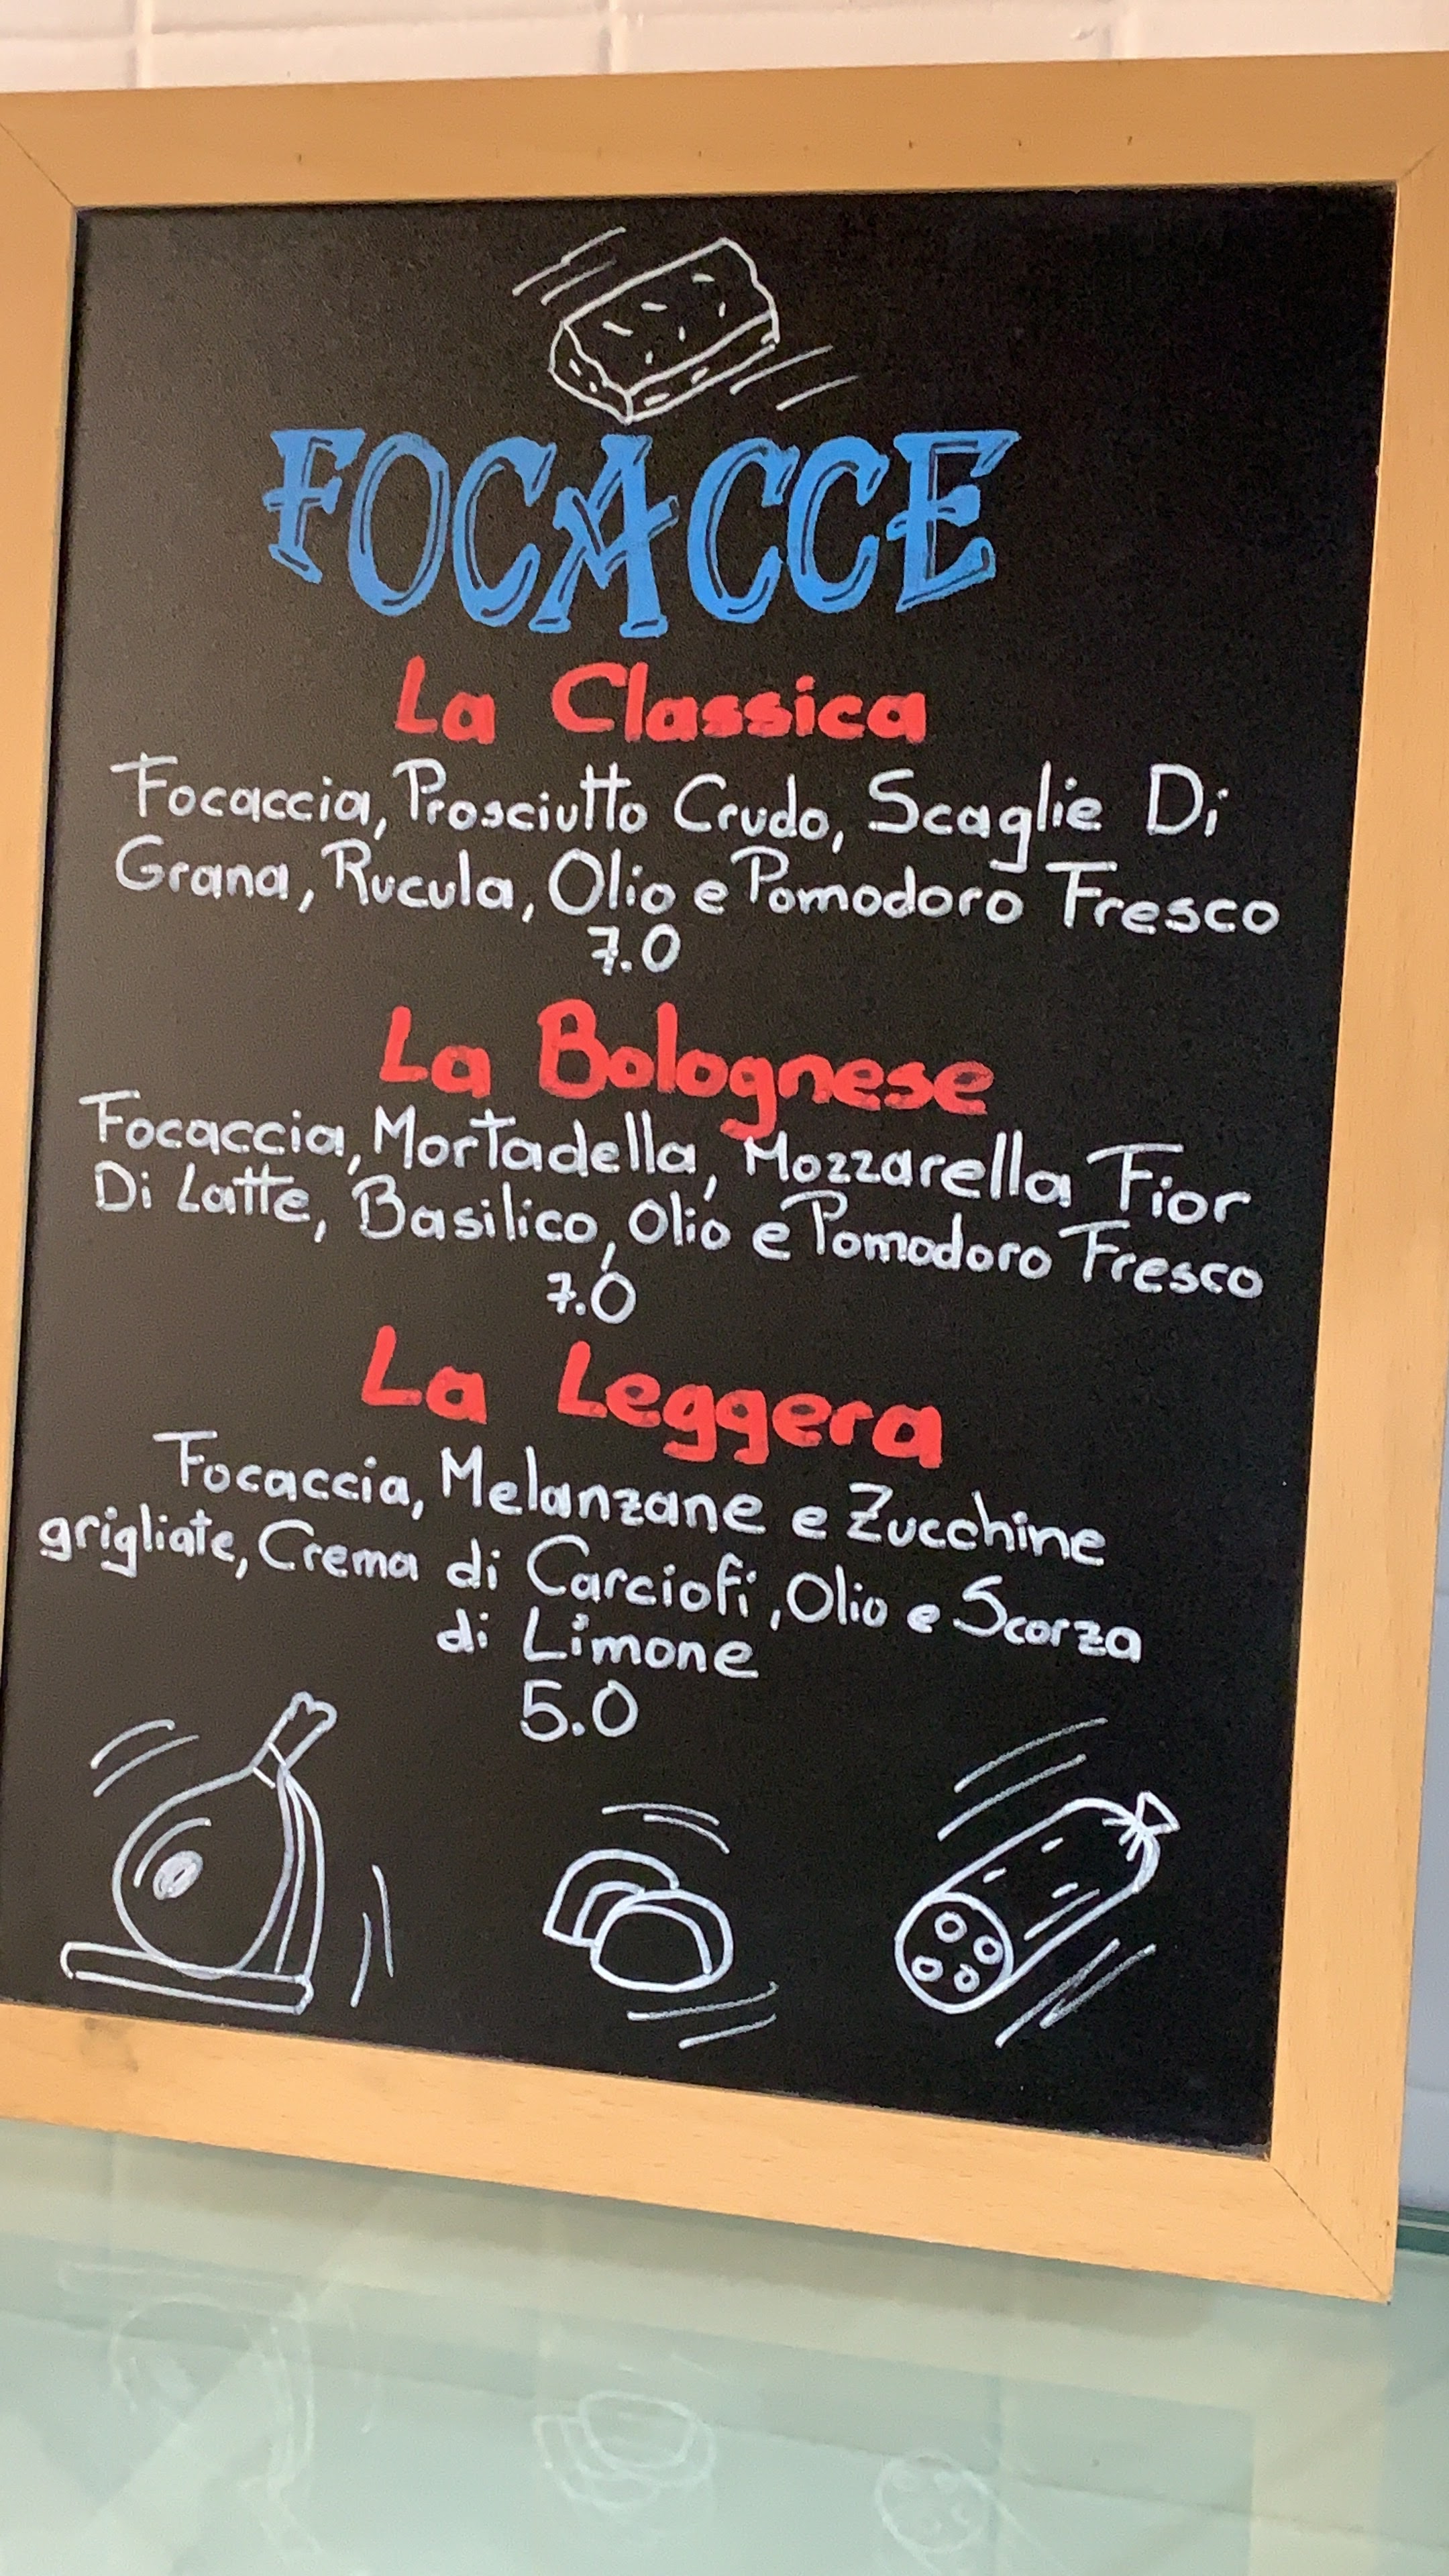 FOCACCE
La Classica
Focaccia, Prosciutto Crudo, Scaglie Di
Grana, Rucula, Olio e Pomodoro Fresco
7.0
La Bolognese
Focaccia, Mortadella, Mozzarella Fior
Di Latte, Basilico, Olio e Pomodoro Fresco
7.0
La Leggera
Focaccia, Melanzane e Zucchine
grigliate, Crema di Carciofi, Olio e Scorza
di Limone
5.0